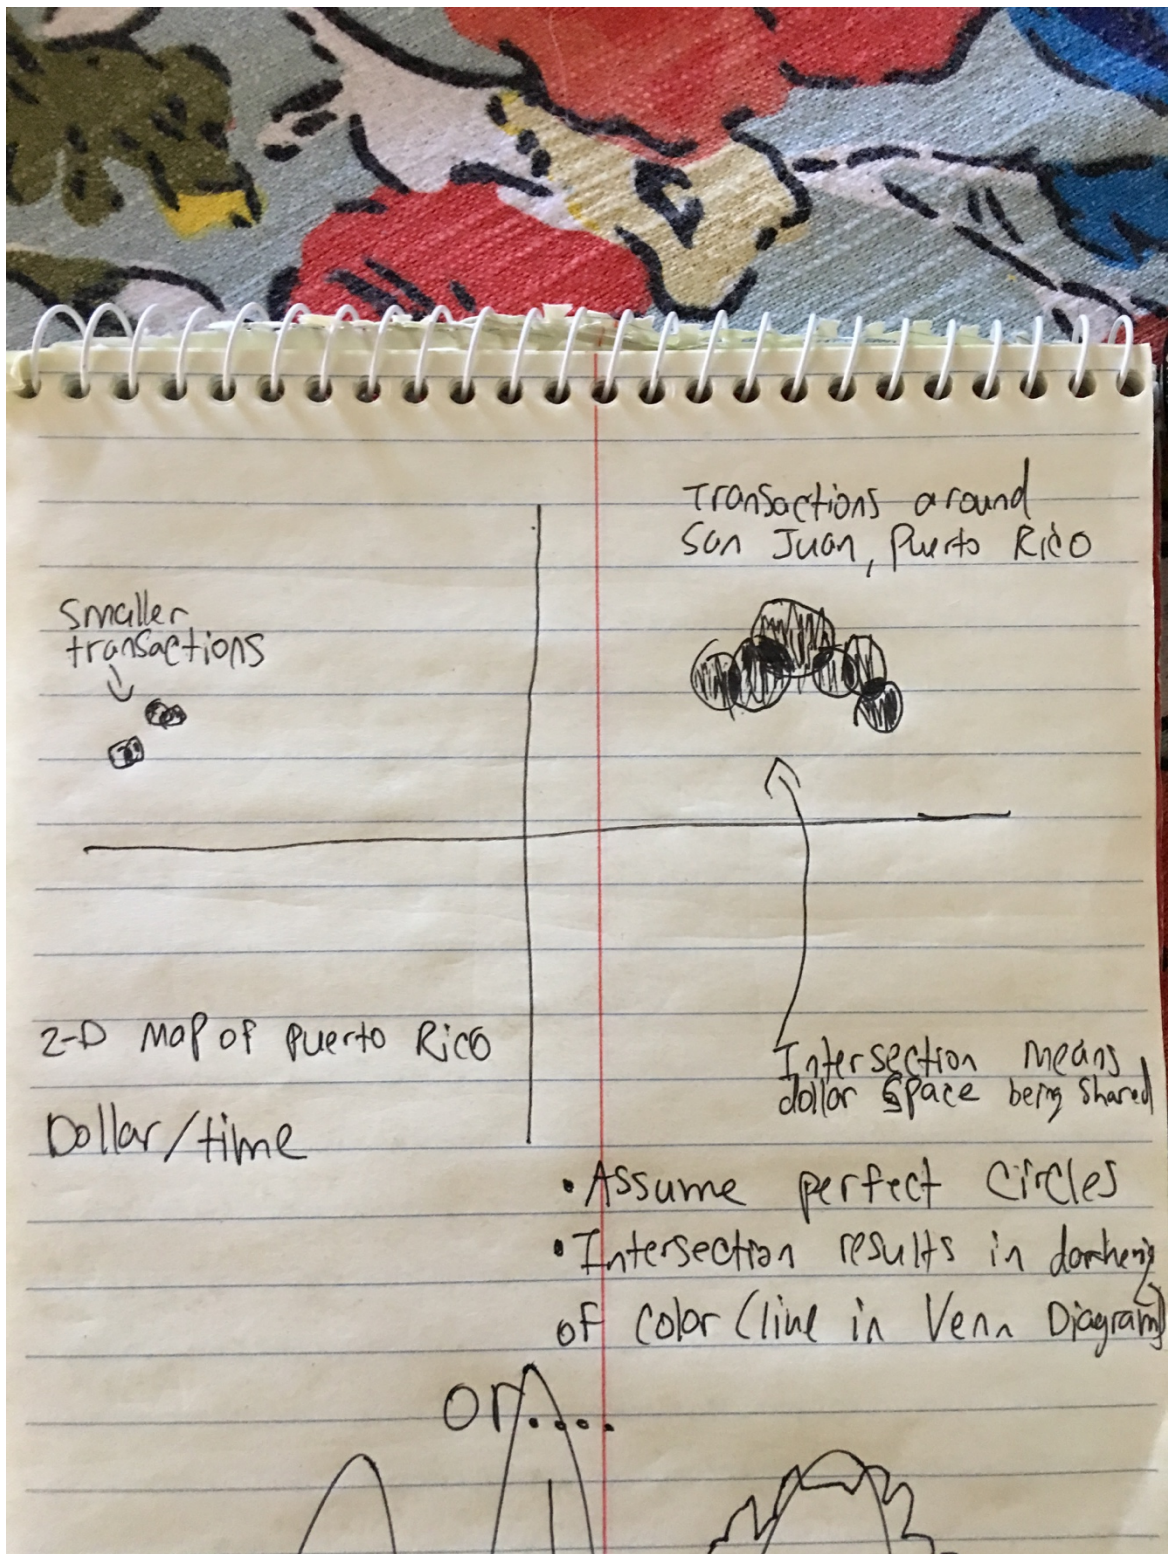 Transactions around
San Juan, Puerto Rico
Smaller
transactions
2-D Map of Puerto Rico
Dollar/time
Intersection means
dollar space being shared
• Assume perfect circles
• Intersection results in
of color (line in Venn Diagram)
or....